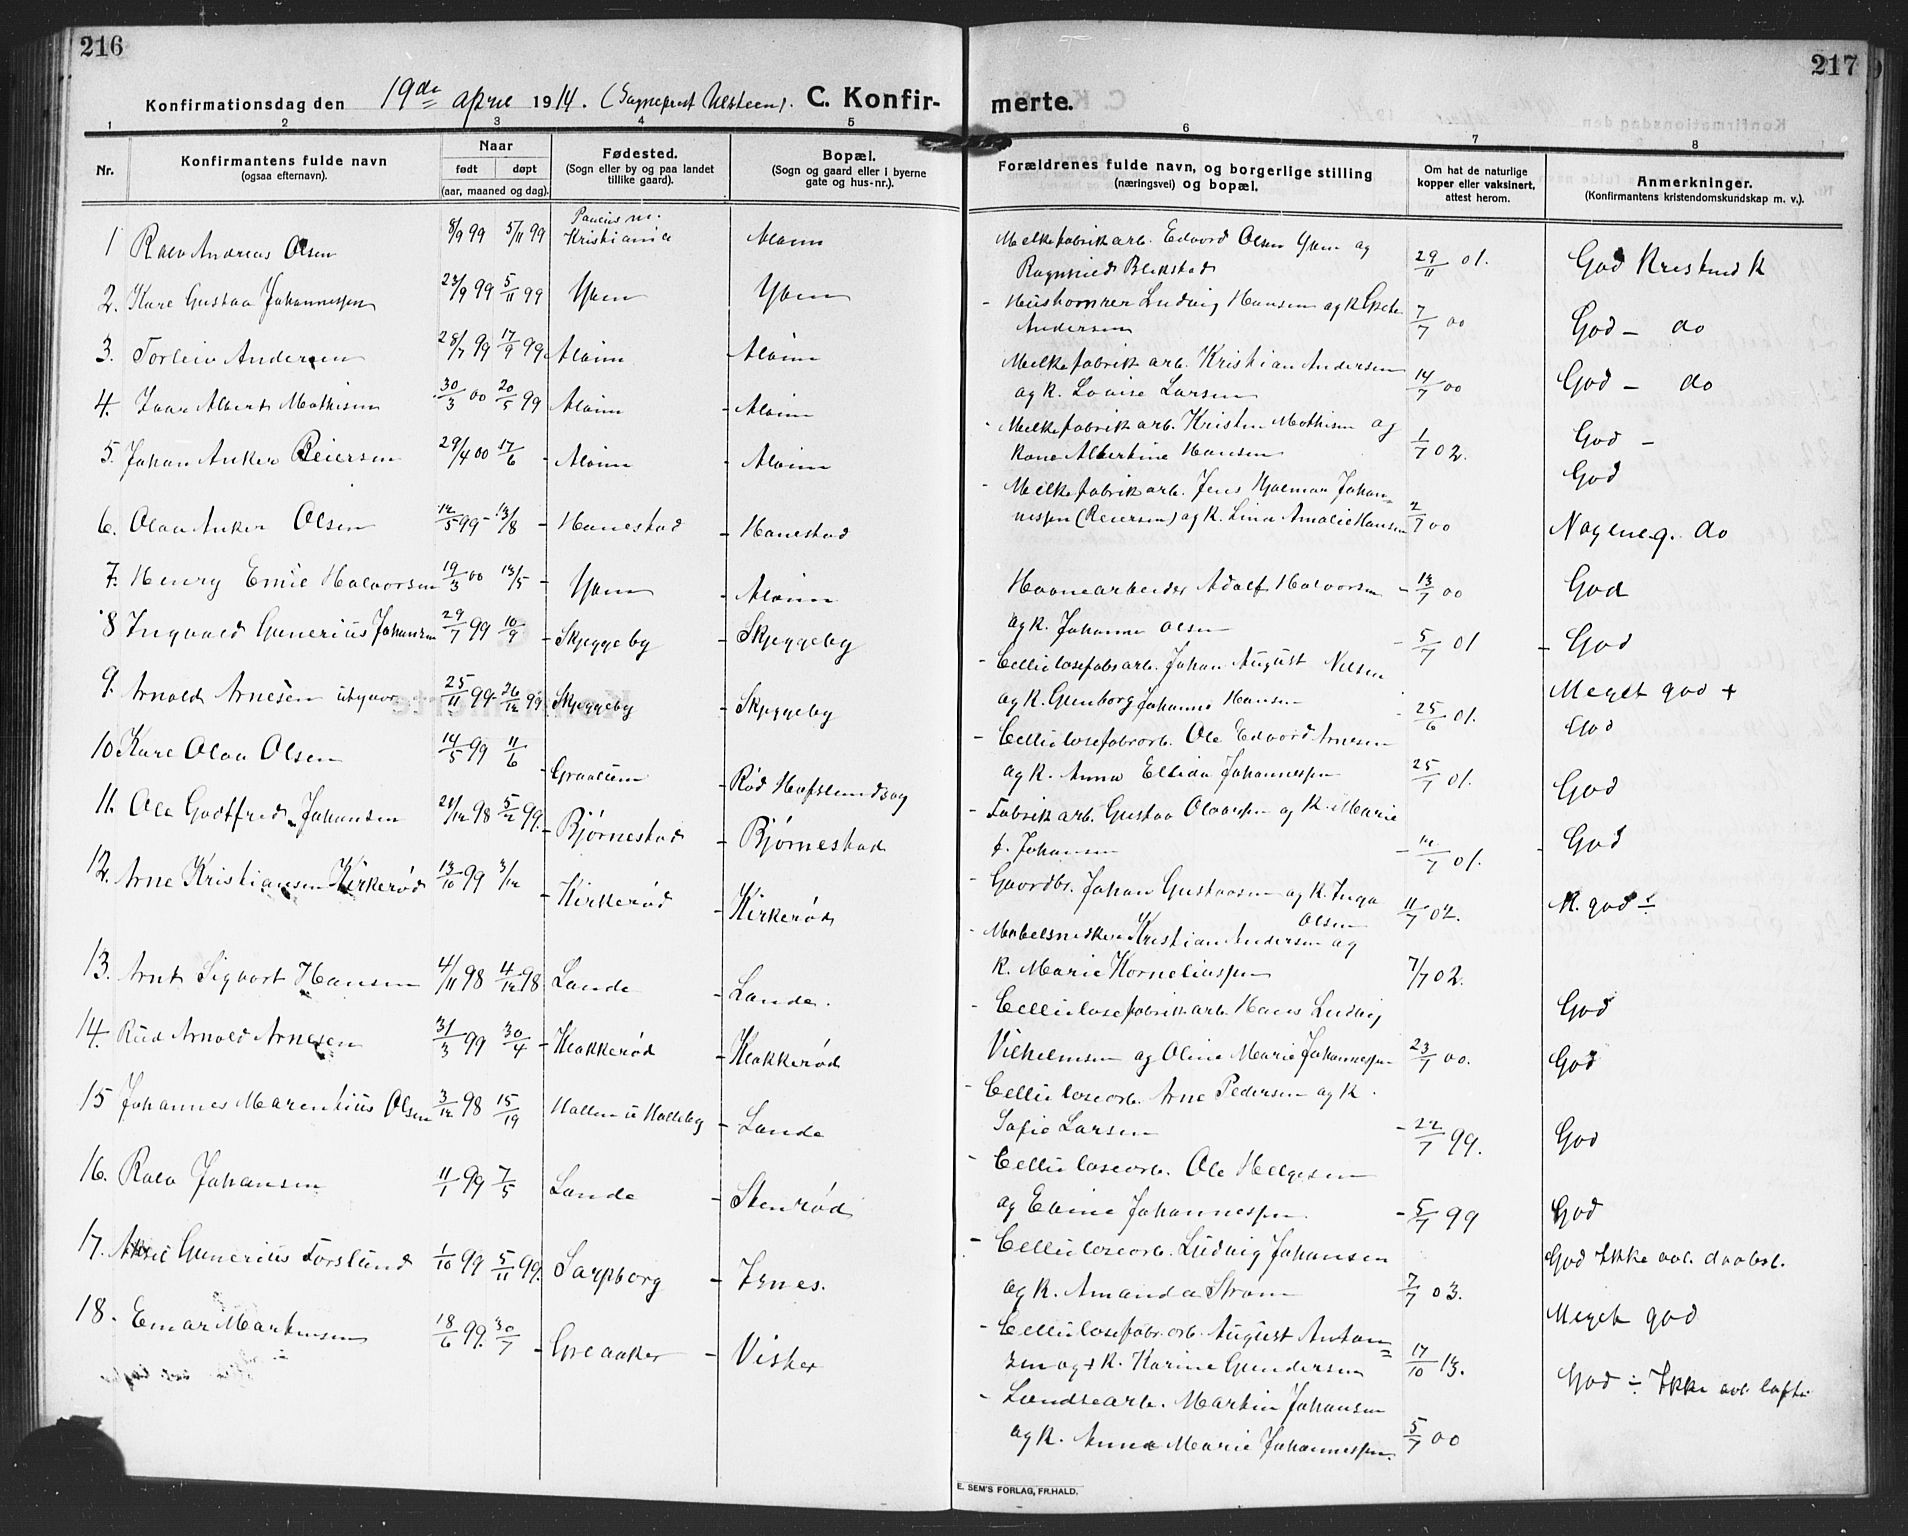 216
217
Konfirmationsdag den 19de april 1914. (Sogneprest Ulsteen). C. Konfirmerte.
1 2 3 4 5 6 7 8
Nr.
Konfirmantens fulde navn
(ogsaa efternavn).
Naar
født døpt
(aar, maaned og dag).
Fødested.
(Sogn eller by og paa landet
tillike gaard).
Bopæl.
(Sogn og gaard eller i byerne
gate og hus-nr.).
Forældrenes fulde navn, og borgerlige stilling
(næringsvei) og bopæl.
Om hat de naturlige
kopper eller vaksinert,
attest herom.
Anmerkninger.
(Konfirmantens kristendomskundskap m. v.).
1 Ralv Andreas Olsen 8/9 99 5/11 99 Paulus m. Kristiania Alvim
2. Kare Gustav Johannessen 5/11 99
3. Torleiv Andersen 28/7 99 17/9 99 Alvim Alvim
4. Ivar Albert Mathisen 30/3 00 20/5 99 Alvim - Alvim
5. Johan Anker Reiersen 29/4 00 17/6 - Alvim - Alvim
6. Olav Anker Olsen 12/5 99 - 13/8 - Hanestad - Hanestad
7. Henry Emil Halvorsen 19/3 00 13/5 - - Alvim
8 Ingvald Gunerius Johansen 29/7 99 10/9 - Skjeggeby - Skjeggeby
9. Arnold Arnesen utgaar 25/11 99 - 26/12 99 Skjeggeby - Skjeggeby
10 Kare Olav Olsen 14/5 99 11/6 - Graalum - Rød Hafslundsøy
11. Ole Godtfred Johansen 21/12 98 5/2 99. - Bjørnestad - Bjørnestad
12. Arne Kristiansen Kirkerød 13/10 99 3/12 - Kirkerød - Kirkerød
13. Arnt Sigvart Hansen 4/11 98 4/12 98 Lande - Lande.
14. Rud Arnold Arnesen 31/3 99 30/4 - Klokkerød - Klokkerød
15 Johannes Marentius Olsen 3/12 98 15/19 Hallen u Halleby - Lande
16. Ralv Johansen 11/1 99 7/5 Lande - Stenrød
17. Gunerius Forslund 1/10 99 5/11 99. Sarpborg - Isnes.
18. Einar Martinsen 18/6 99. 30/7 - Greaaker - Vister
Melkefabrikarb. Edvard Olsen og
Ragnhild Blekstad 29/11 01. God Kristend K
- Ludvig Hansen og K
Andersen 7/7 00 God - do
Melkefabrik arb. Kristian Andersen
og K. Lovise Larsen 14/7 00 God - do
- Melkefabrik arb. Kristen Mathisen og
Kone Albertine Hansen 1/7 02. God -
God
- Melkefabrikarb. Jens Hjalmar Johan-
nessen (Reiersen) og K. Lina Amalie Hansen 2/7 00 Nogenlg. do
Havnearbeider Adolf Halvorsen - 13/7 00 God
og K. Johanne Olsen - 5/7 01 - God
- Cellulosefabarb. Johan August Nilsen
og K. Gunborg Johanne Hansen - 25/6 01. Meget god +
- Cellulosefabarb. Ole Edvard Arnesen God
og K. Anna Ellida Johannessen 25/7 01. God
- Fabrik arb. Gustav Olavssen og K. Marie
f. Johansen - 12/7 01. - God
- Gaardbr. Johan Gustavsen og K. Inga
Olsen 11/7 02. M. god ÷
- Møbelsnekker Kristian Andersen og
K. Marie Korneliussen 7/7 02.
- Cellulosefabrikarb. Hans Ludvig God
Vilhelmsen og Oline Marie Johannessen 23/7 00. God
- Celluloseorb. Arne Pedersen og K.
Sofie Larsen - 22/7 99. God
- Celluloseorb. Ole Helgesen
og Eline Johannessen - 5/7 99 God
- Celluloseorb. Ludvig Johansen God Ikke avl. daabsl.
og K. Amanda Strøm 7/7 03.
- Cellulosefabr. orb. August Anton- Meget god
sen og K. Karine Gundersen 17/10 13.
God ÷ Ikke avl. løfte
- Lændsearb. Martin Johansen
og K. Anna Marie Johannessen. 5/7 00
E. SEM'S FORLAG, FR.HALD.